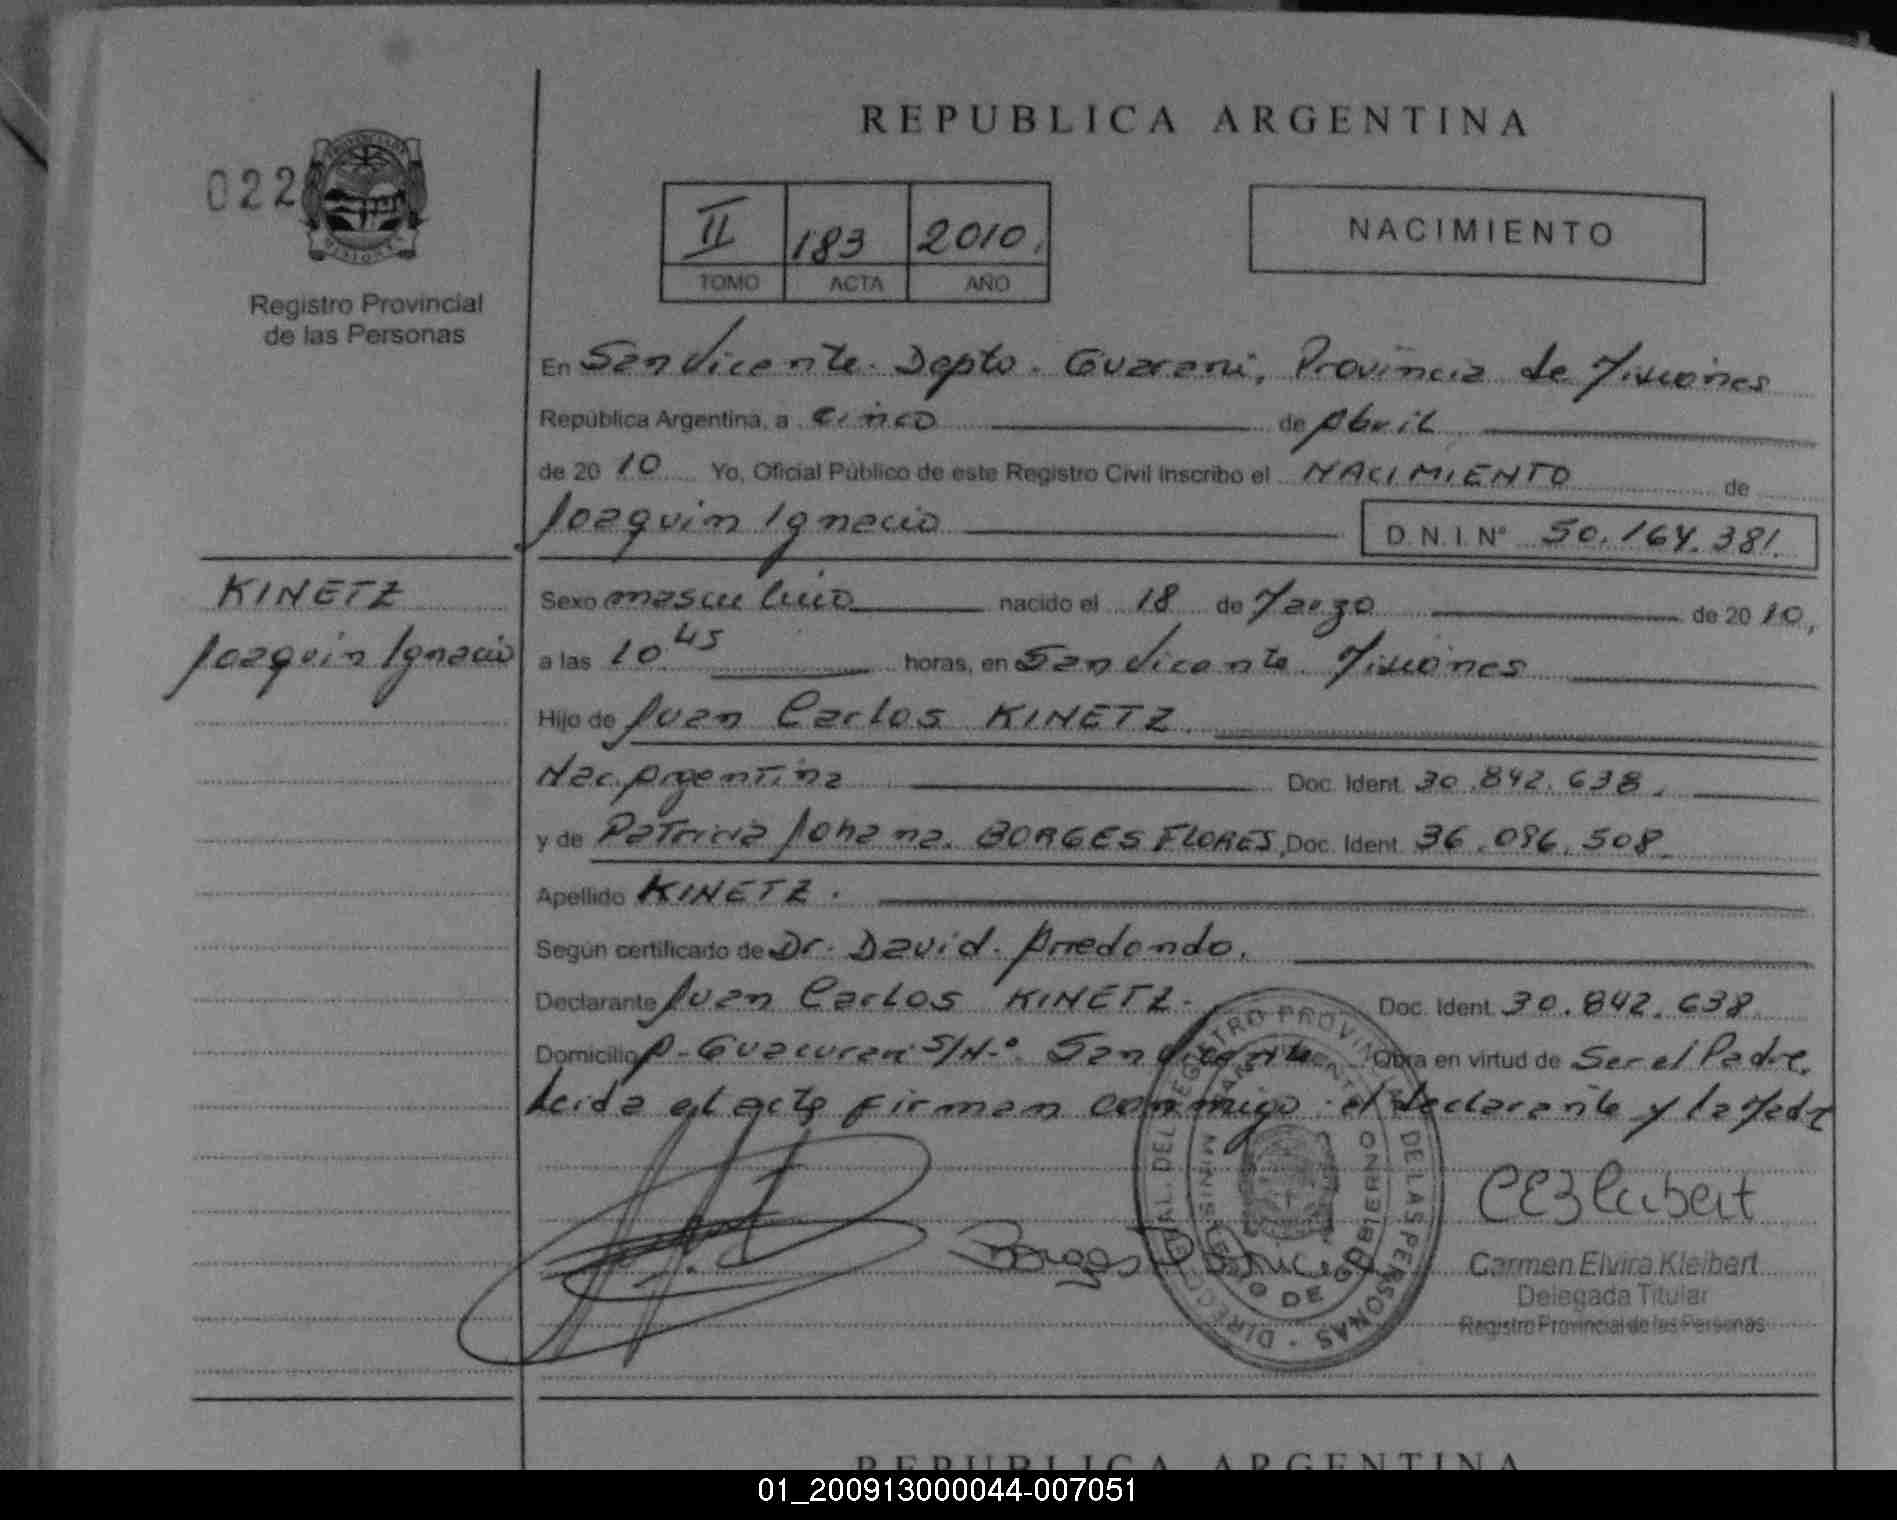 REPUBLICA ARGENTINA
022
Registro Provincial
de las Personas
II 183 2010.
TOMO ACTA AÑO
NACIMIENTO
En San Vicente. Depto. Guarani, Provincia de Misiones
República Argentina, a cinco de Abril
de 20 10 Yo, Oficial Público de este Registro Civil Inscribo el NACIMIENTO de
Joaquin Ignacio D.N.I. Nº 50.164.381.
KINETZ
Joaquin Ignacio
Sexo masculino nacido el 18 de Marzo de 20 10,
a las 10 45 horas, en San Vicente Misiones
Hijo de Juan Carlos KINETZ.
Nac. Argentina Doc. Ident. 30.842.638.
y de Patricia Johana. BORGES FLORES, Doc. Ident. 36.096.508.
Apellido KINETZ.
Según certificado de Dr. David. Arredondo.
Declarante Juan Carlos KINETZ. Doc. Ident. 30.842.638
Domicilio A. Guacurari S/N.º San Vicente Obra en virtud de Ser el Padre.
Leida el acta firman conmigo el declarante y la Madre
Borges Patricia
Carmen Elvira Kleibert
Delegada Titular
Registro Provincial de las Personas
DIRECC. GRAL. DEL REGISTRO PROVINCIAL DE LAS PERSONAS
MINISTERIO DE GOBIERNO
REPUBLICA ARGENTINA
01_200913000044-007051